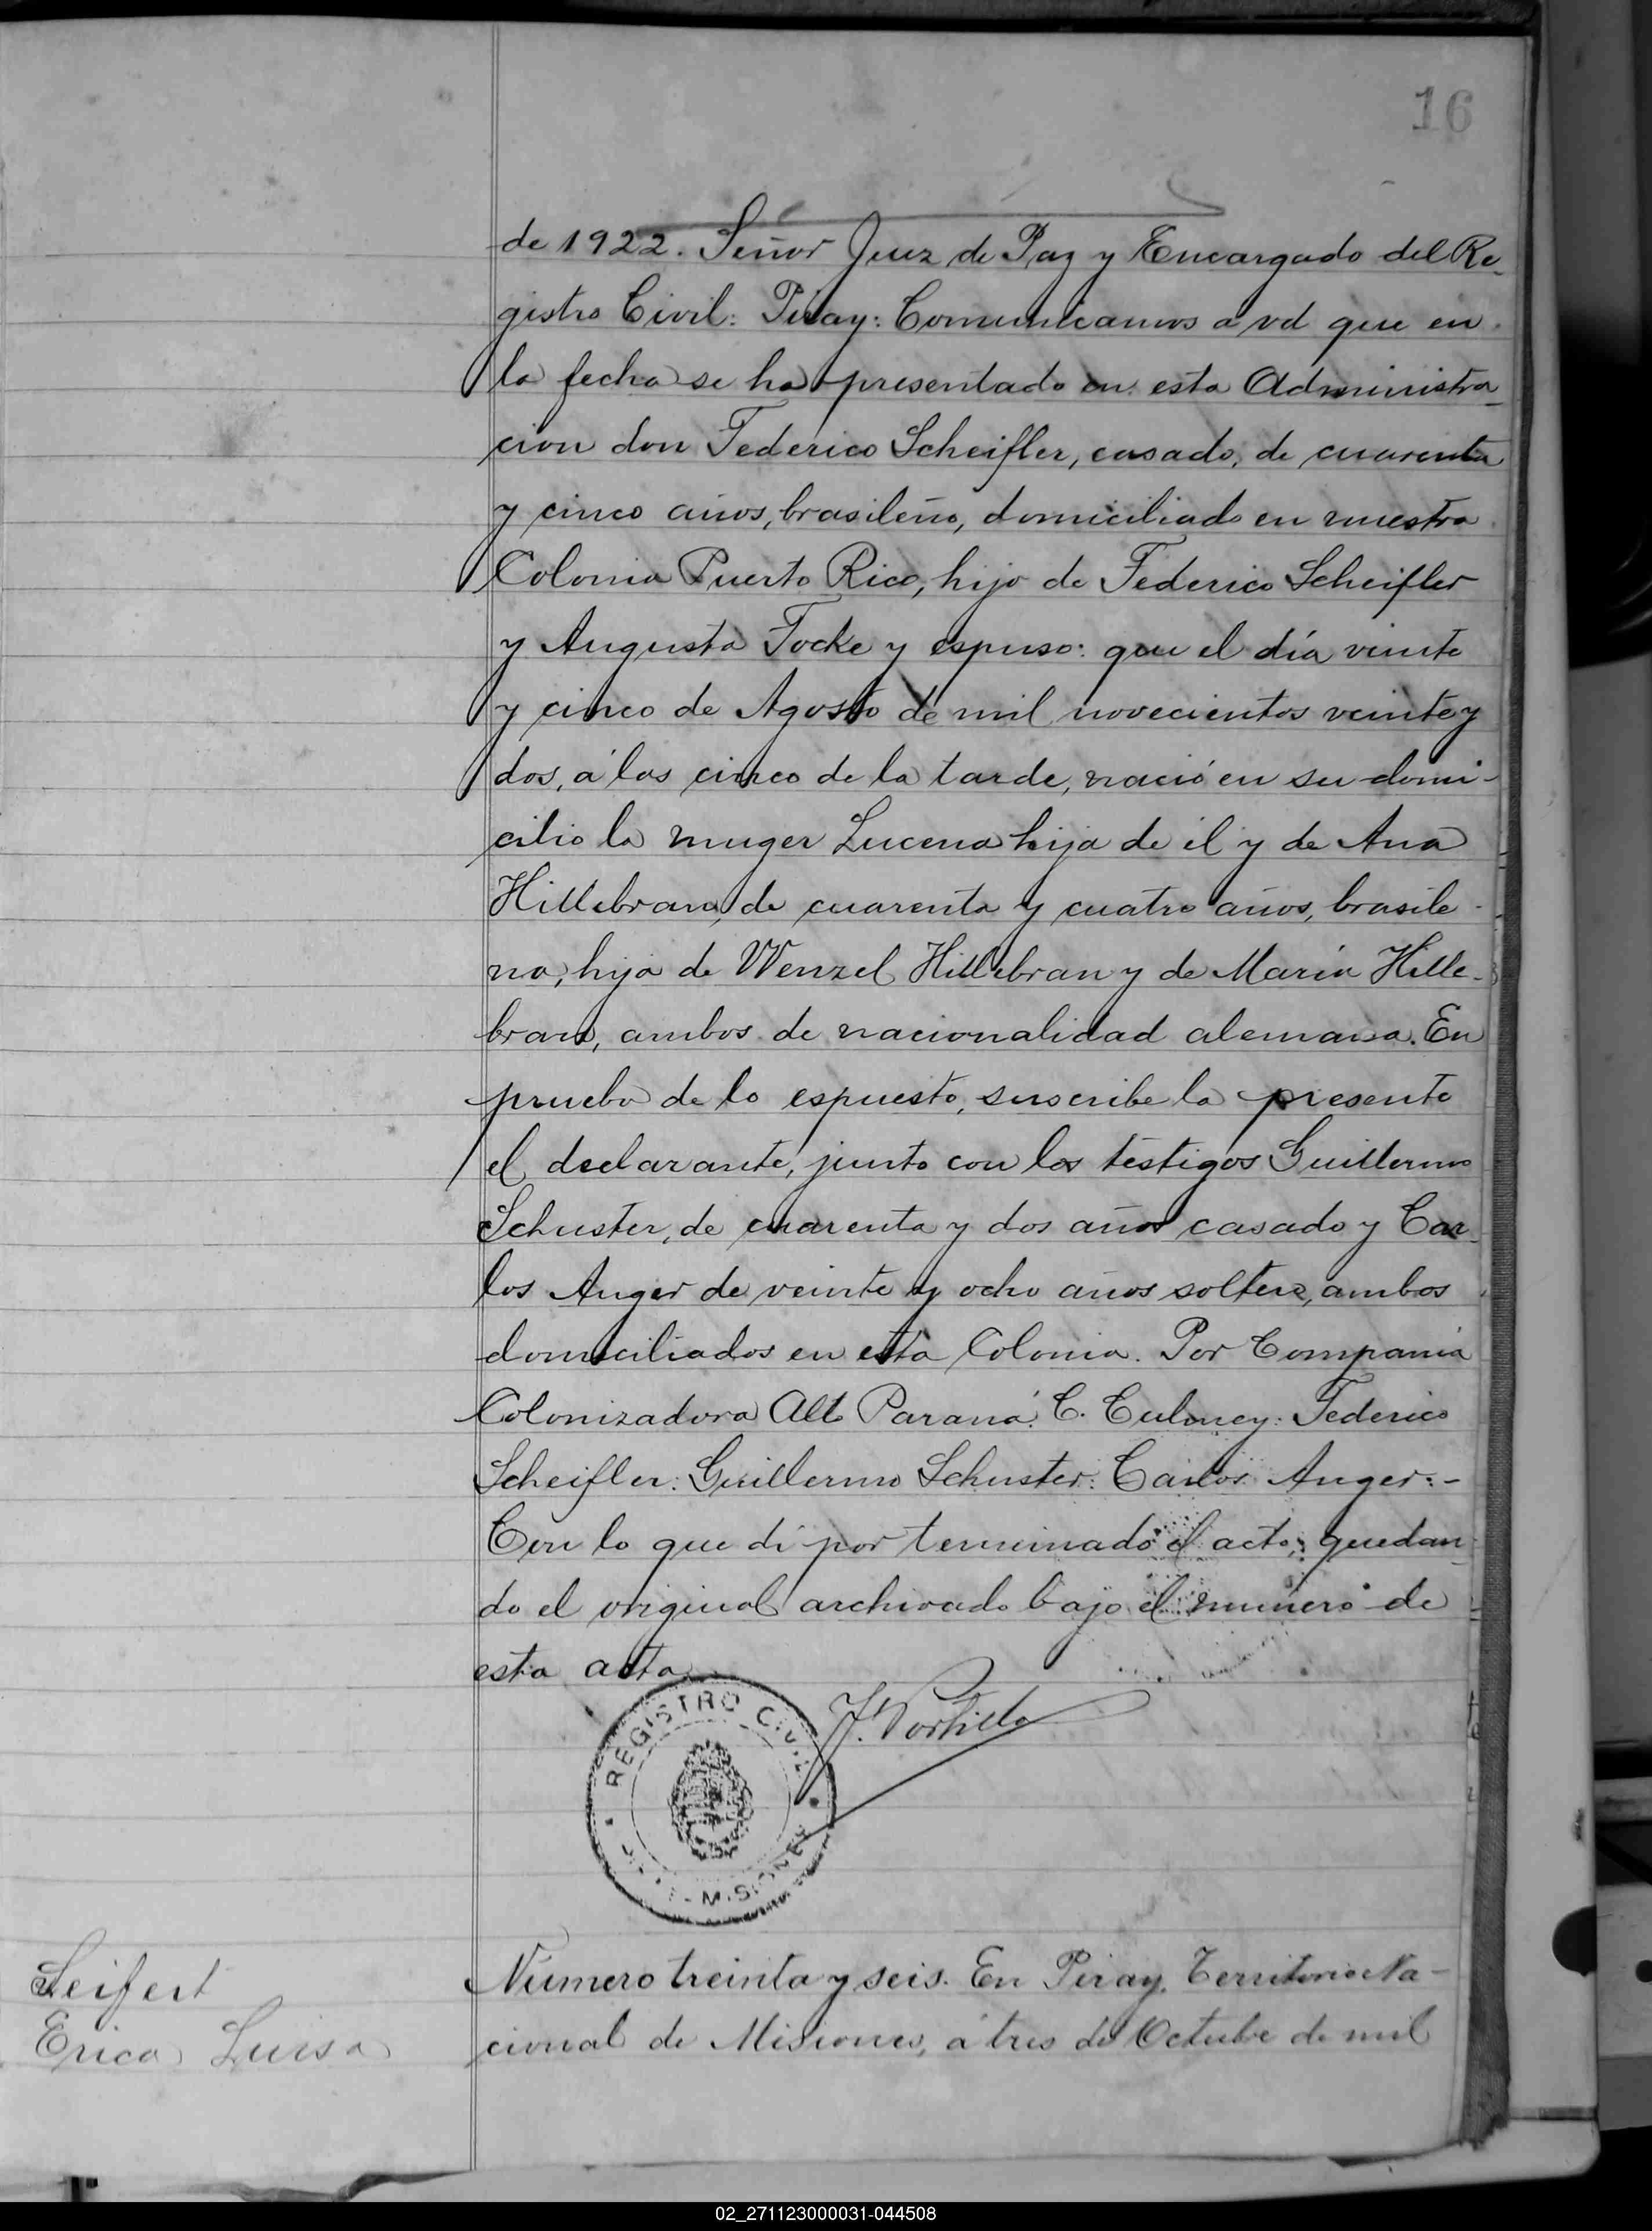 16
de 1922. Señor Juez de Paz y Encargado del Re-
gistro Civil: Piray: Comunicamos a vd que en
la fecha se ha presentado en esta Administra-
cion don Federico Scheifler, casado, de cuarenta
y cinco años, brasileño, domiciliado en nuestra
Colonia Puerto Rico, hijo de Federico Scheifler
y Augusta Focke y espuso: que el día veinte
y cinco de Agosto de mil novecientos veinte y
dos, á las cinco de la tarde, nació en su domi-
cilio la muger Lucena hija de él y de Ana
Hillebran, de cuarenta y cuatro años, brasile-
na, hija de Wenzel Hillebran y de María Hille-
bran, ambos de nacionalidad alemana. En
prueba de lo espuesto, suscribe la presente
el declarante, junto con los testigos Guillermo
Schuster, de cuarenta y dos años casado y Car-
los Auger de veinte y ocho años soltero, ambos
domiciliados en esta Colonia. Por Compania
Colonizadora Alto Paraná: C. Culmey: Federico
Scheifler: Guillermo Schuster: Carlos Auger:-
Con lo que dí por terminado el acto, quedan-
do el original archivado bajo el número de
esta acta
J. Portillo
REGISTRO CIVIL
MISIONES
Seifert
Erica Luisa
Número treinta y seis. En Piray, Territorio Na-
cional de Misiones, á tres de Octubre de mil
02_271123000031-044508